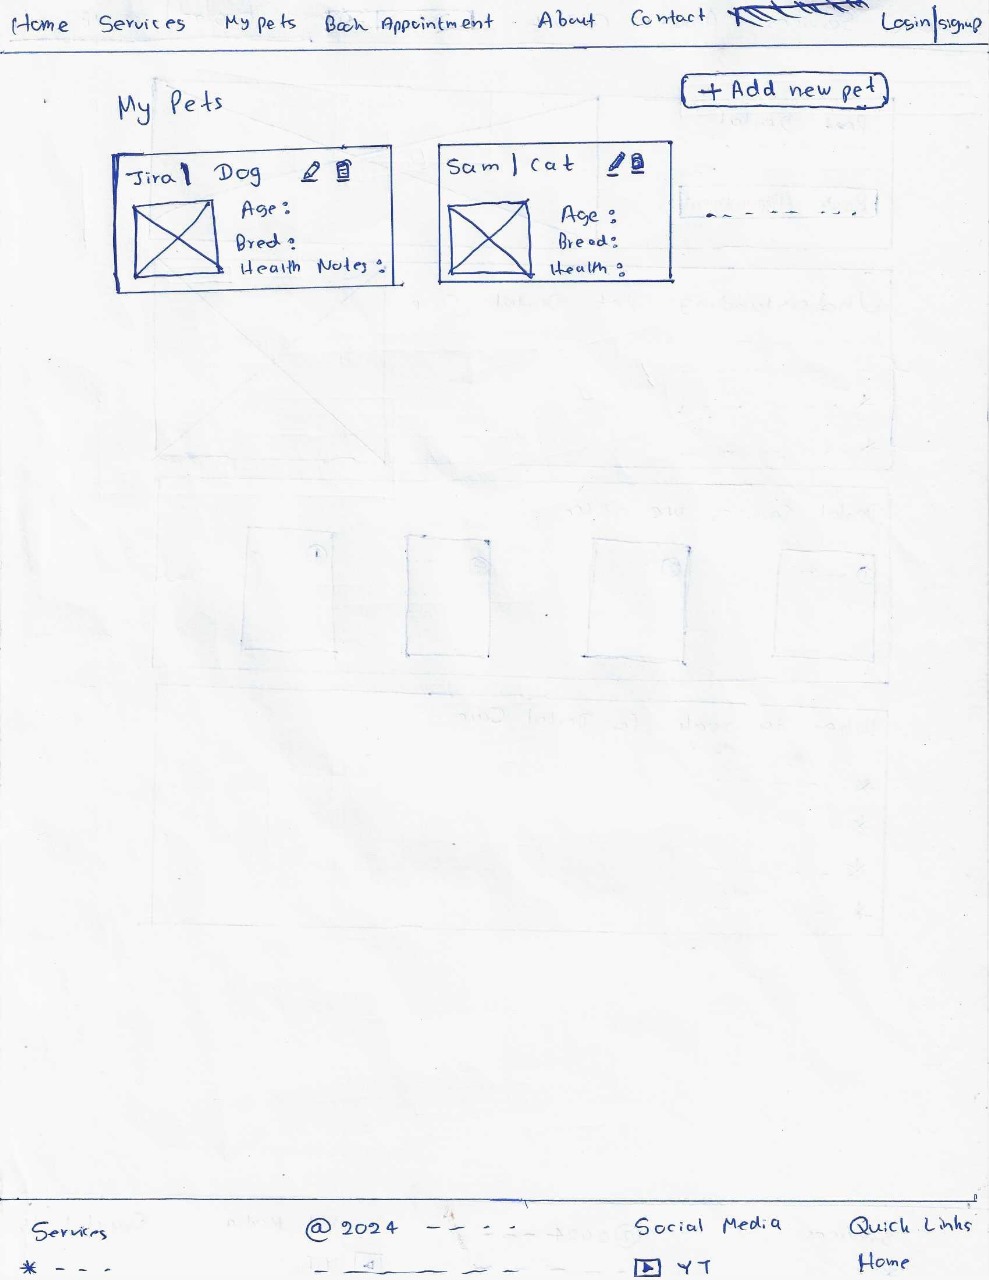 Home Services My pets Book Appointment About Contact Login|signup
My Pets
+ Add new pet
Jira| Dog
Age:
Bred:
Health Notes:
Sam | Cat
Age:
Breed:
Health:
Services
@ 2024
Social Media
YT
Quick Links
Home